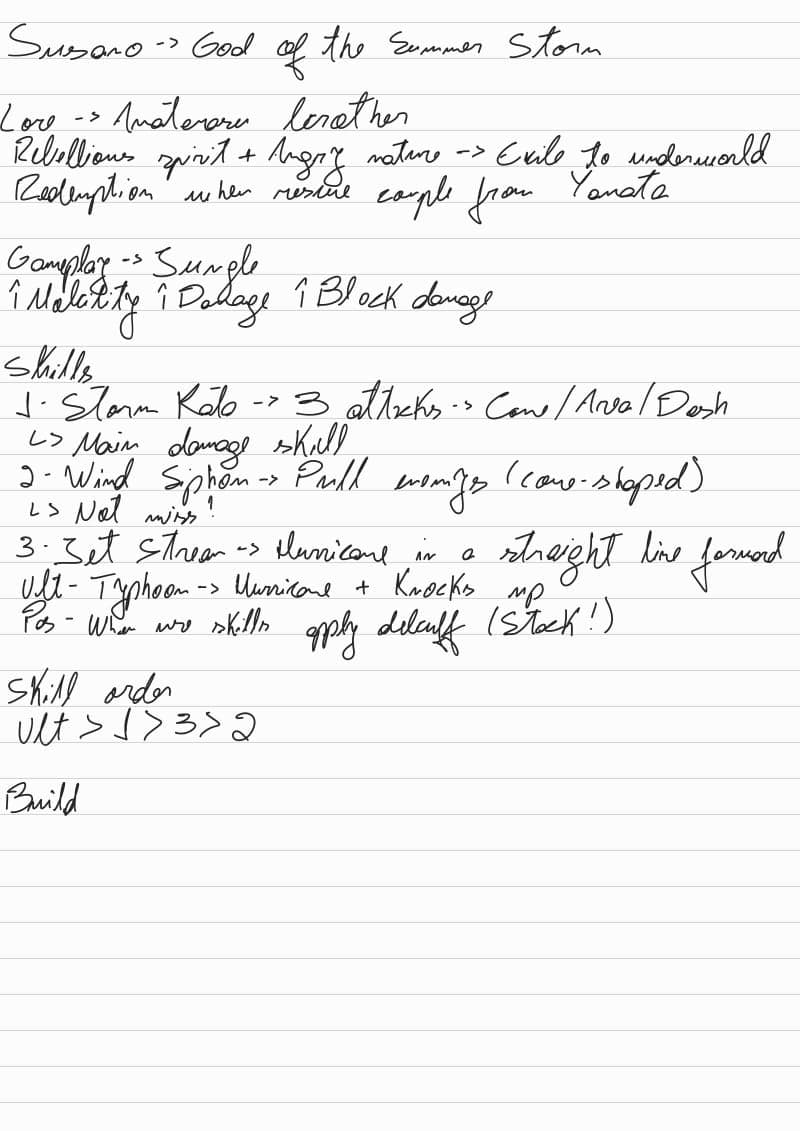 Susano -> God of the Summer Storm
Lore -> Amaterasu brother
Rebellious spirit + Angry nature -> Exile to underworld
Redemption when rescue couple from Yamata
Gameplay -> Jungle
↑ Mobility ↑ Damage ↑ Block damage
Skills
1 - Storm Kata -> 3 attacks -> Cone/Area/Dash
↳> Main damage skill
2 - Wind Siphon -> Pull enemys (cone-shaped)
↳> Not miss!
3 - Jet Stream -> Hurricane in a straight line forward
Ult - Typhoon -> Hurricane + Knocks up
Pas - When use skills apply debuff (Stack!)
Skill order
Ult > 1 > 3 > 2
Build